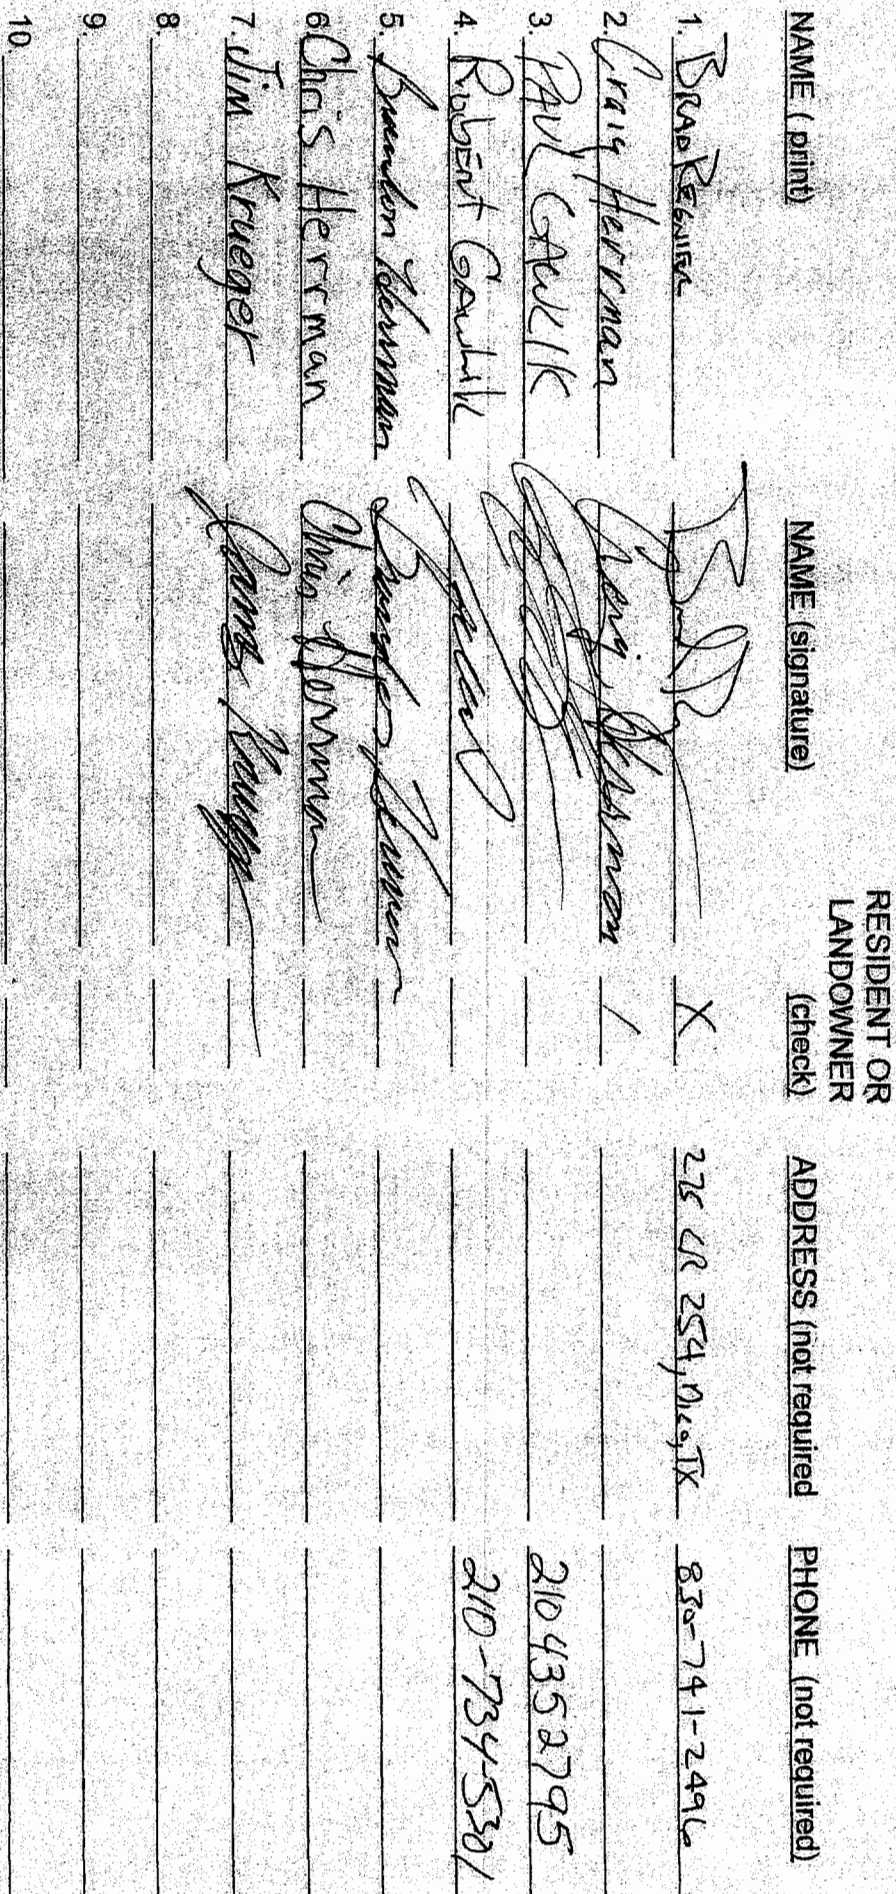 RESIDENT OR
LANDOWNER
NAME ( print) NAME (signature) (check) ADDRESS (not required PHONE (not required)
1. BRAD REGNIER X 275 CR 254, Mico, TX 830-741-2496
2. Craig Herrman Craig Herrman /
3. PAUL GAWLIK 210 435 2795
4. Robert Gawlik 210-734-5301
5. Brandon Herrman Brandon Herrman
6. Chris Herrman Chris Herrman
7. Jim Krueger James Krueger
8.
9.
10.